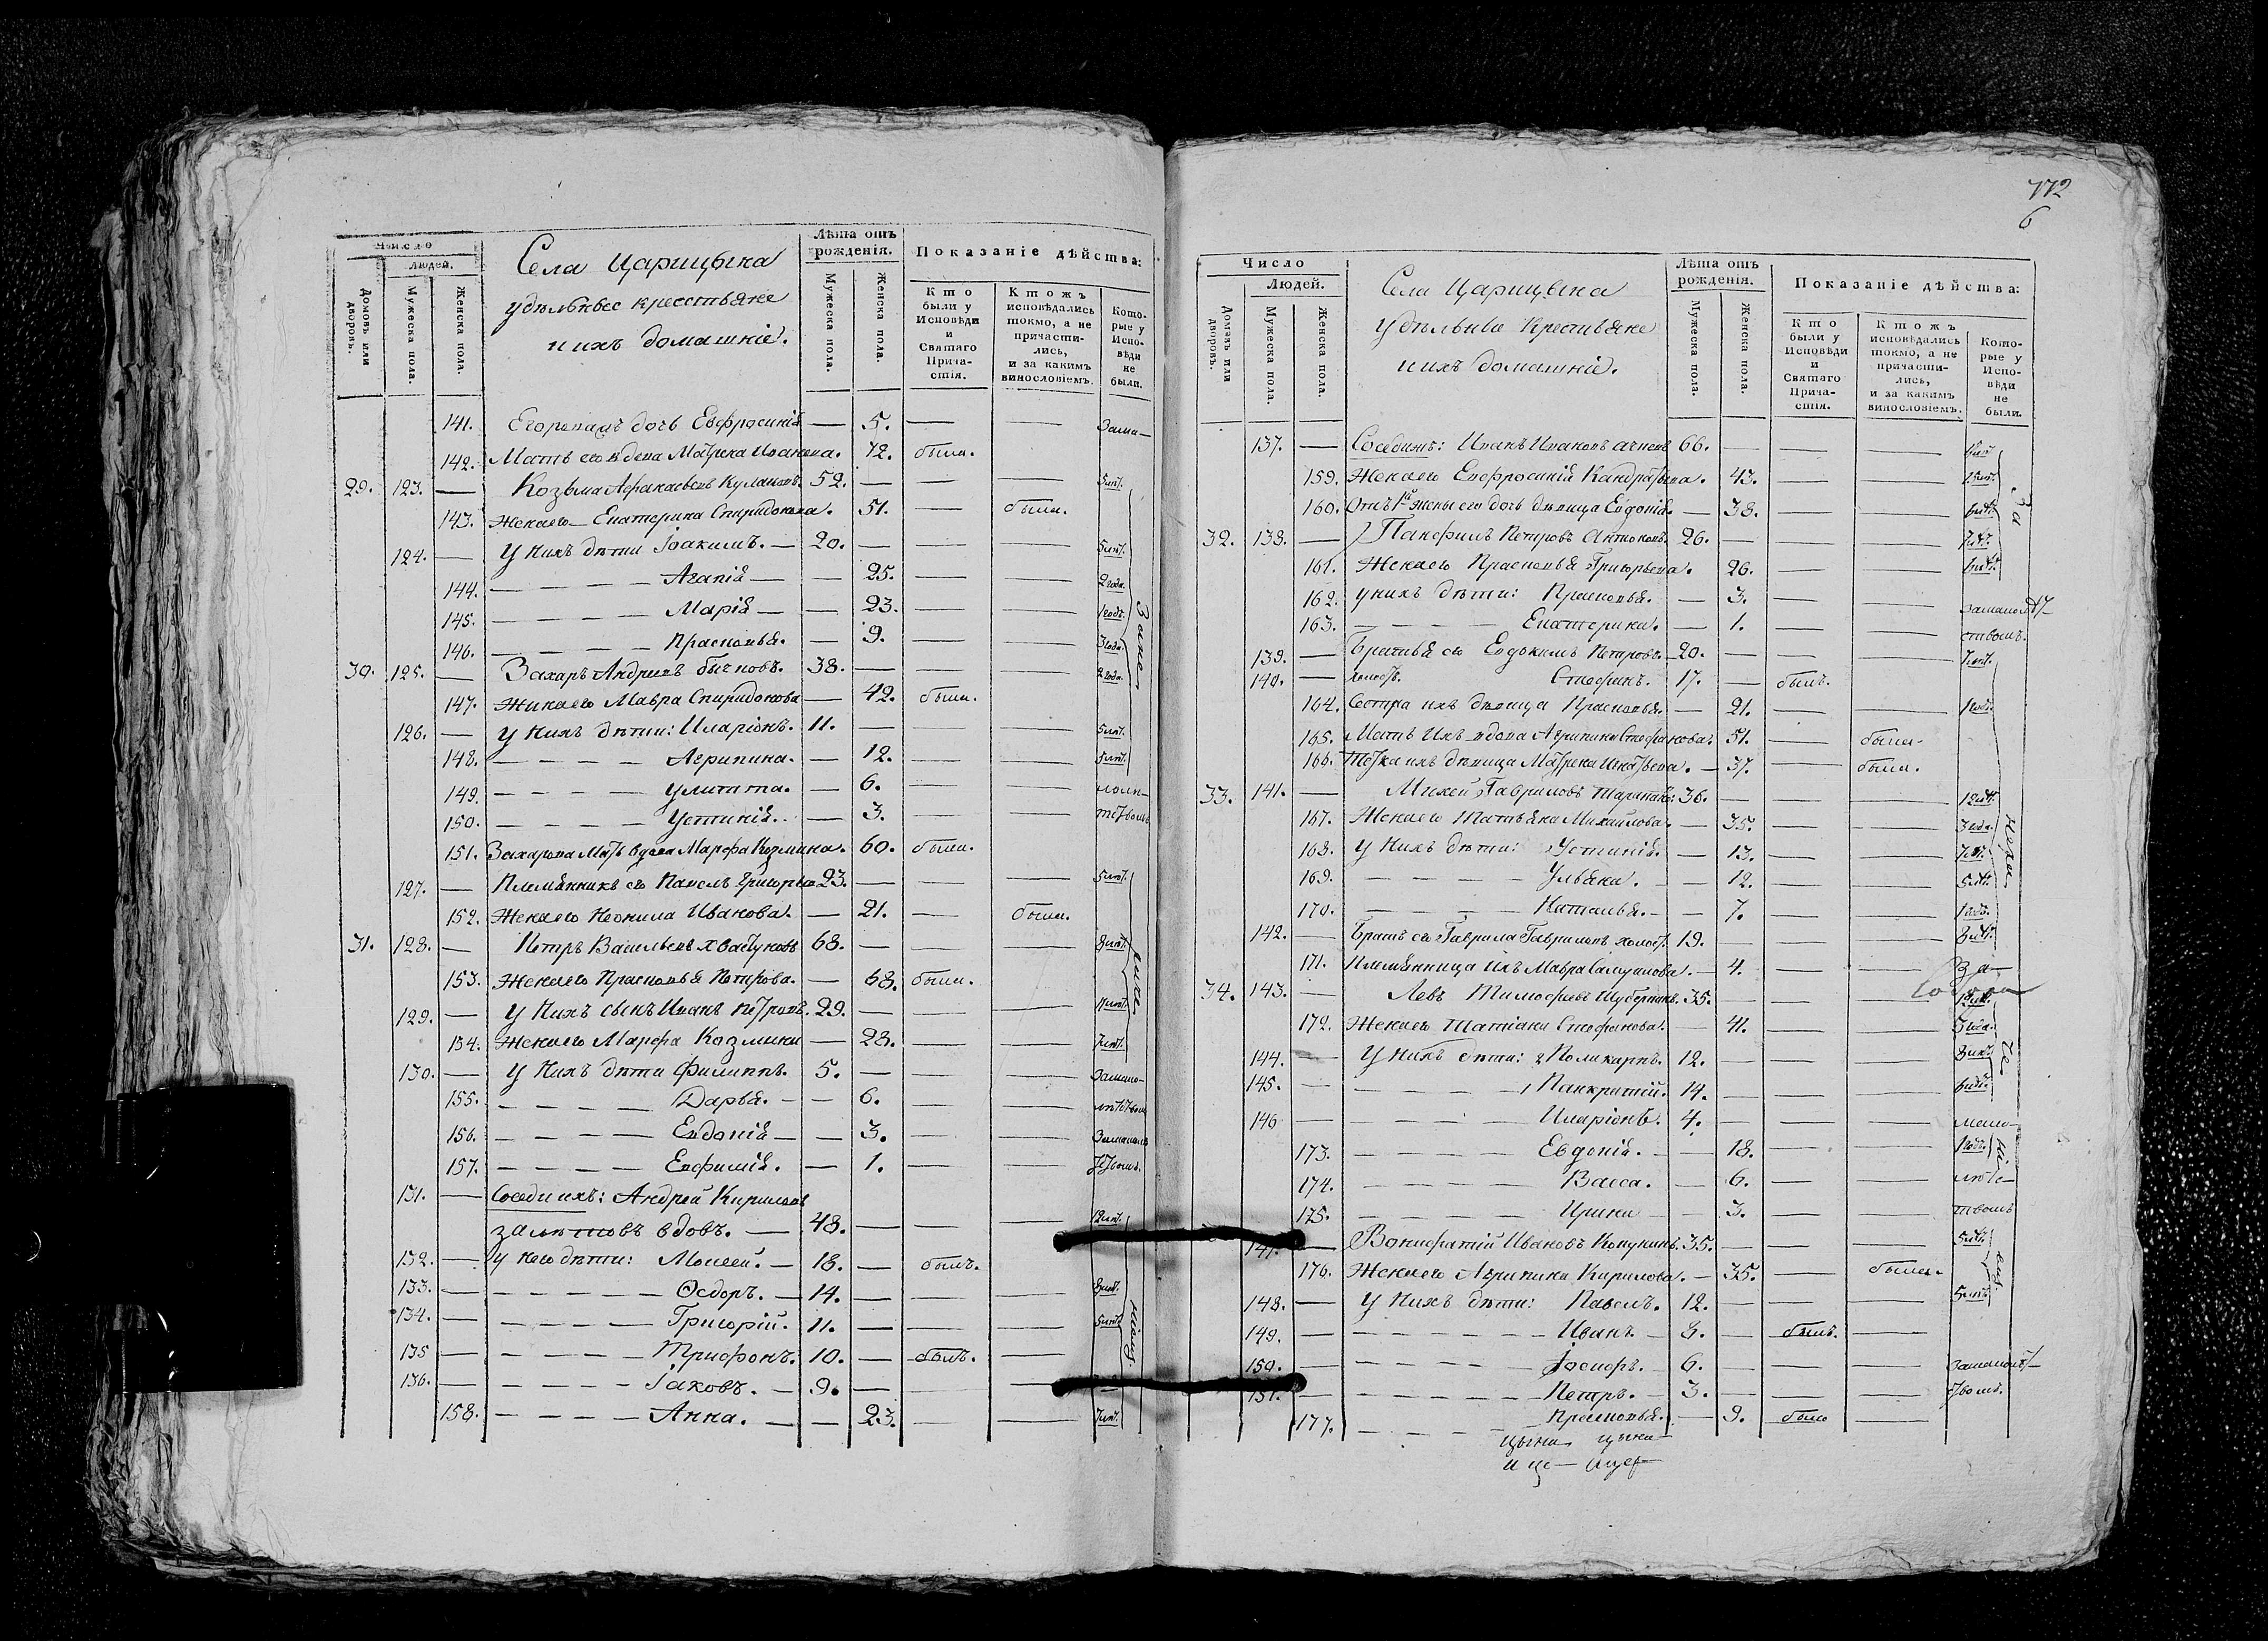 Число
Людей.
Домовъ или дворовъ.
Мужеска пола.
Женска пола.
Села Царицына
удѣльные крестьяне
и ихъ домашніе.
Лѣта отъ рожденія.
Мужеска пола.
Женска пола.
Показаніе дѣйства:
Кто были у Исповѣди и Святаго Причастія.
Ктожъ исповѣдались токмо, а не причастились, и за какимъ винословіемъ.
Которые у Исповѣди не были.
141. Дочь Евфросинія — 5. — —
142. Мать его вдова Матрена Иванова. 72. была.
29. 123. — Козьма Афанасьевъ 52. — — — 5 лѣт.
143. Жена его Екатерина Спиридонова. 51. — была.
124. — У нихъ дѣти Іоакимъ. — 20. — — — 5 лѣт.
144. — — — — Агапія — — 25. — — 2 года.
145. — — — — Марія — — 23. — — 1 годъ.
146. — — — — Прасковья. — 9. — — 3 года.
30. 125. — Захаръ Андреевъ Бычковъ. 38. — — — 2 года.
147. Жена его Мавра Спиридонова — 42. была.
126. — У нихъ дѣти: Иларіонъ. 11. — — — 5 лѣт.
148. — — — — Агрипина. — 12. — — 5 лѣт.
149. — — — — Улитта. — 6. — —
150. — — — — Устинія. — 3. — —
151. Захарова мать вдова Марфа Козмина. 60. была.
127. — Племянникъ его Павелъ Григорьев 23. — — — 5 лѣт.
152. Жена его Неонила Иванова. — 21. — была.
31. 128. — Петръ Васильевъ Хвастуновъ 68. — — — 8 лѣт.
153. Жена его Прасковья Петрова. — 68. была.
129. — У нихъ сынъ Иванъ Петровъ. 29. — — —
154. Жена его Марфа Козмина — 28. — — 7 лѣт.
130. — У нихъ дѣти Филиппъ. 5. — — —
155. — — — — Дарья. — — 6. — —
156. — — — — Евдокія — — 3. — —
157. — — — — Евфимія. — 1. — —
131. — Соседи ихъ: Андрей Кириловъ
вдовъ. — 48. — — — 12 лѣт.
132. — У него дѣти: Моисей. — 18. — былъ.
133. — — — — — Ѳедоръ. — 14. — — — 8 лѣт.
134. — — — — — Григорій. 11. — — — 5 лѣт.
135 — — — — — Трифонъ. 10. — былъ. —
136. — — — — — Іаковъ. — 9. — — —
158. — — — — Анна. — — 23. — — 7 лѣт.
772
6
Число
Людей.
Домовъ или дворовъ.
Мужеска пола.
Женска пола.
Села Царицына
удѣльные крестьяне
и ихъ домашніе.
Лѣта отъ рожденія.
Мужеска пола.
Женска пола.
Показаніе дѣйства:
Кто были у Исповѣди и Святаго Причастія.
Ктожъ исповѣдались токмо, а не причастились, и за какимъ винословіемъ.
Которые у Исповѣди не были.
137. — Соседи ихъ: Иванъ Ивановъ 66. — — —
159. Жена его Евфросинія Кандратьева. 43. — —
160. Отъ 1й жены его дочь дѣвица Евдокія. — 38. — —
32. 138. — Панфилъ Петровъ Антоновъ. 26. — — — 7 лѣт.
161. Жена его Прасковья Григорьева. 26. — —
162. У нихъ дѣти: Прасковья. — 3. — —
163. — — — — Екатерина. — 1. — —
139. — Братья его Евдокимъ Петровъ. 20. — — — 7 лѣт.
140. — холост. Стефанъ. 17. — былъ.
164. Сестра ихъ дѣвица Прасковья. — 21. — — 1 годъ.
165. Мать ихъ вдова Агрипина Стефанова. 51. — была.
166. Тетка ихъ дѣвица Матрена Игнатьева. — 37. — была.
33. 141. — Михей Гавриловъ 36. — — — 12 лѣт.
167. Жена его Татьяна Михайлова. — 35. — — 3 года.
168. У нихъ дѣти: Устинія. — 13. — — 7 лѣт.
169. — — — — Ульяна. — 12. — — 5 лѣт.
170. — — — — Наталья. — 7. — — 1 годъ.
142. — Братъ его Гаврила Гавриловъ холост. 19. — — — 8 лѣт.
171. Племянница ихъ Мавра Самуилова. — 4. — —
34. 143. — Левъ Тимофеевъ 35. — — —
172. Жена его Татіана Стефанова. — 41. — — 3 года.
144. — У нихъ дѣти: 2 Поликарпъ. 12. — — — 8 лѣт.
145. — — — — 1 Панкратій. 14. — — — 6 лѣт.
146 — — — — Иларіонъ. 4. — — —
173. — — — — Евдокія. — — 18. — — 1 годъ.
174. — — — — Васса. — 6. — —
175. — — — — Ирина — — 3. — —
147. — Вонифатій Ивановъ 35. — — — 5 лѣт.
176. Жена его Агрипина Кирилова. — 35. — была.
148. — У нихъ дѣти: Павелъ. 12. — — — 5 лѣт.
149. — — — — — Иванъ. — 8. — былъ. —
150. — — — — — 6. — — —
151. — — — — — Петръ. — 3. — — —
177. — — — — Прасковья. — 9. была —